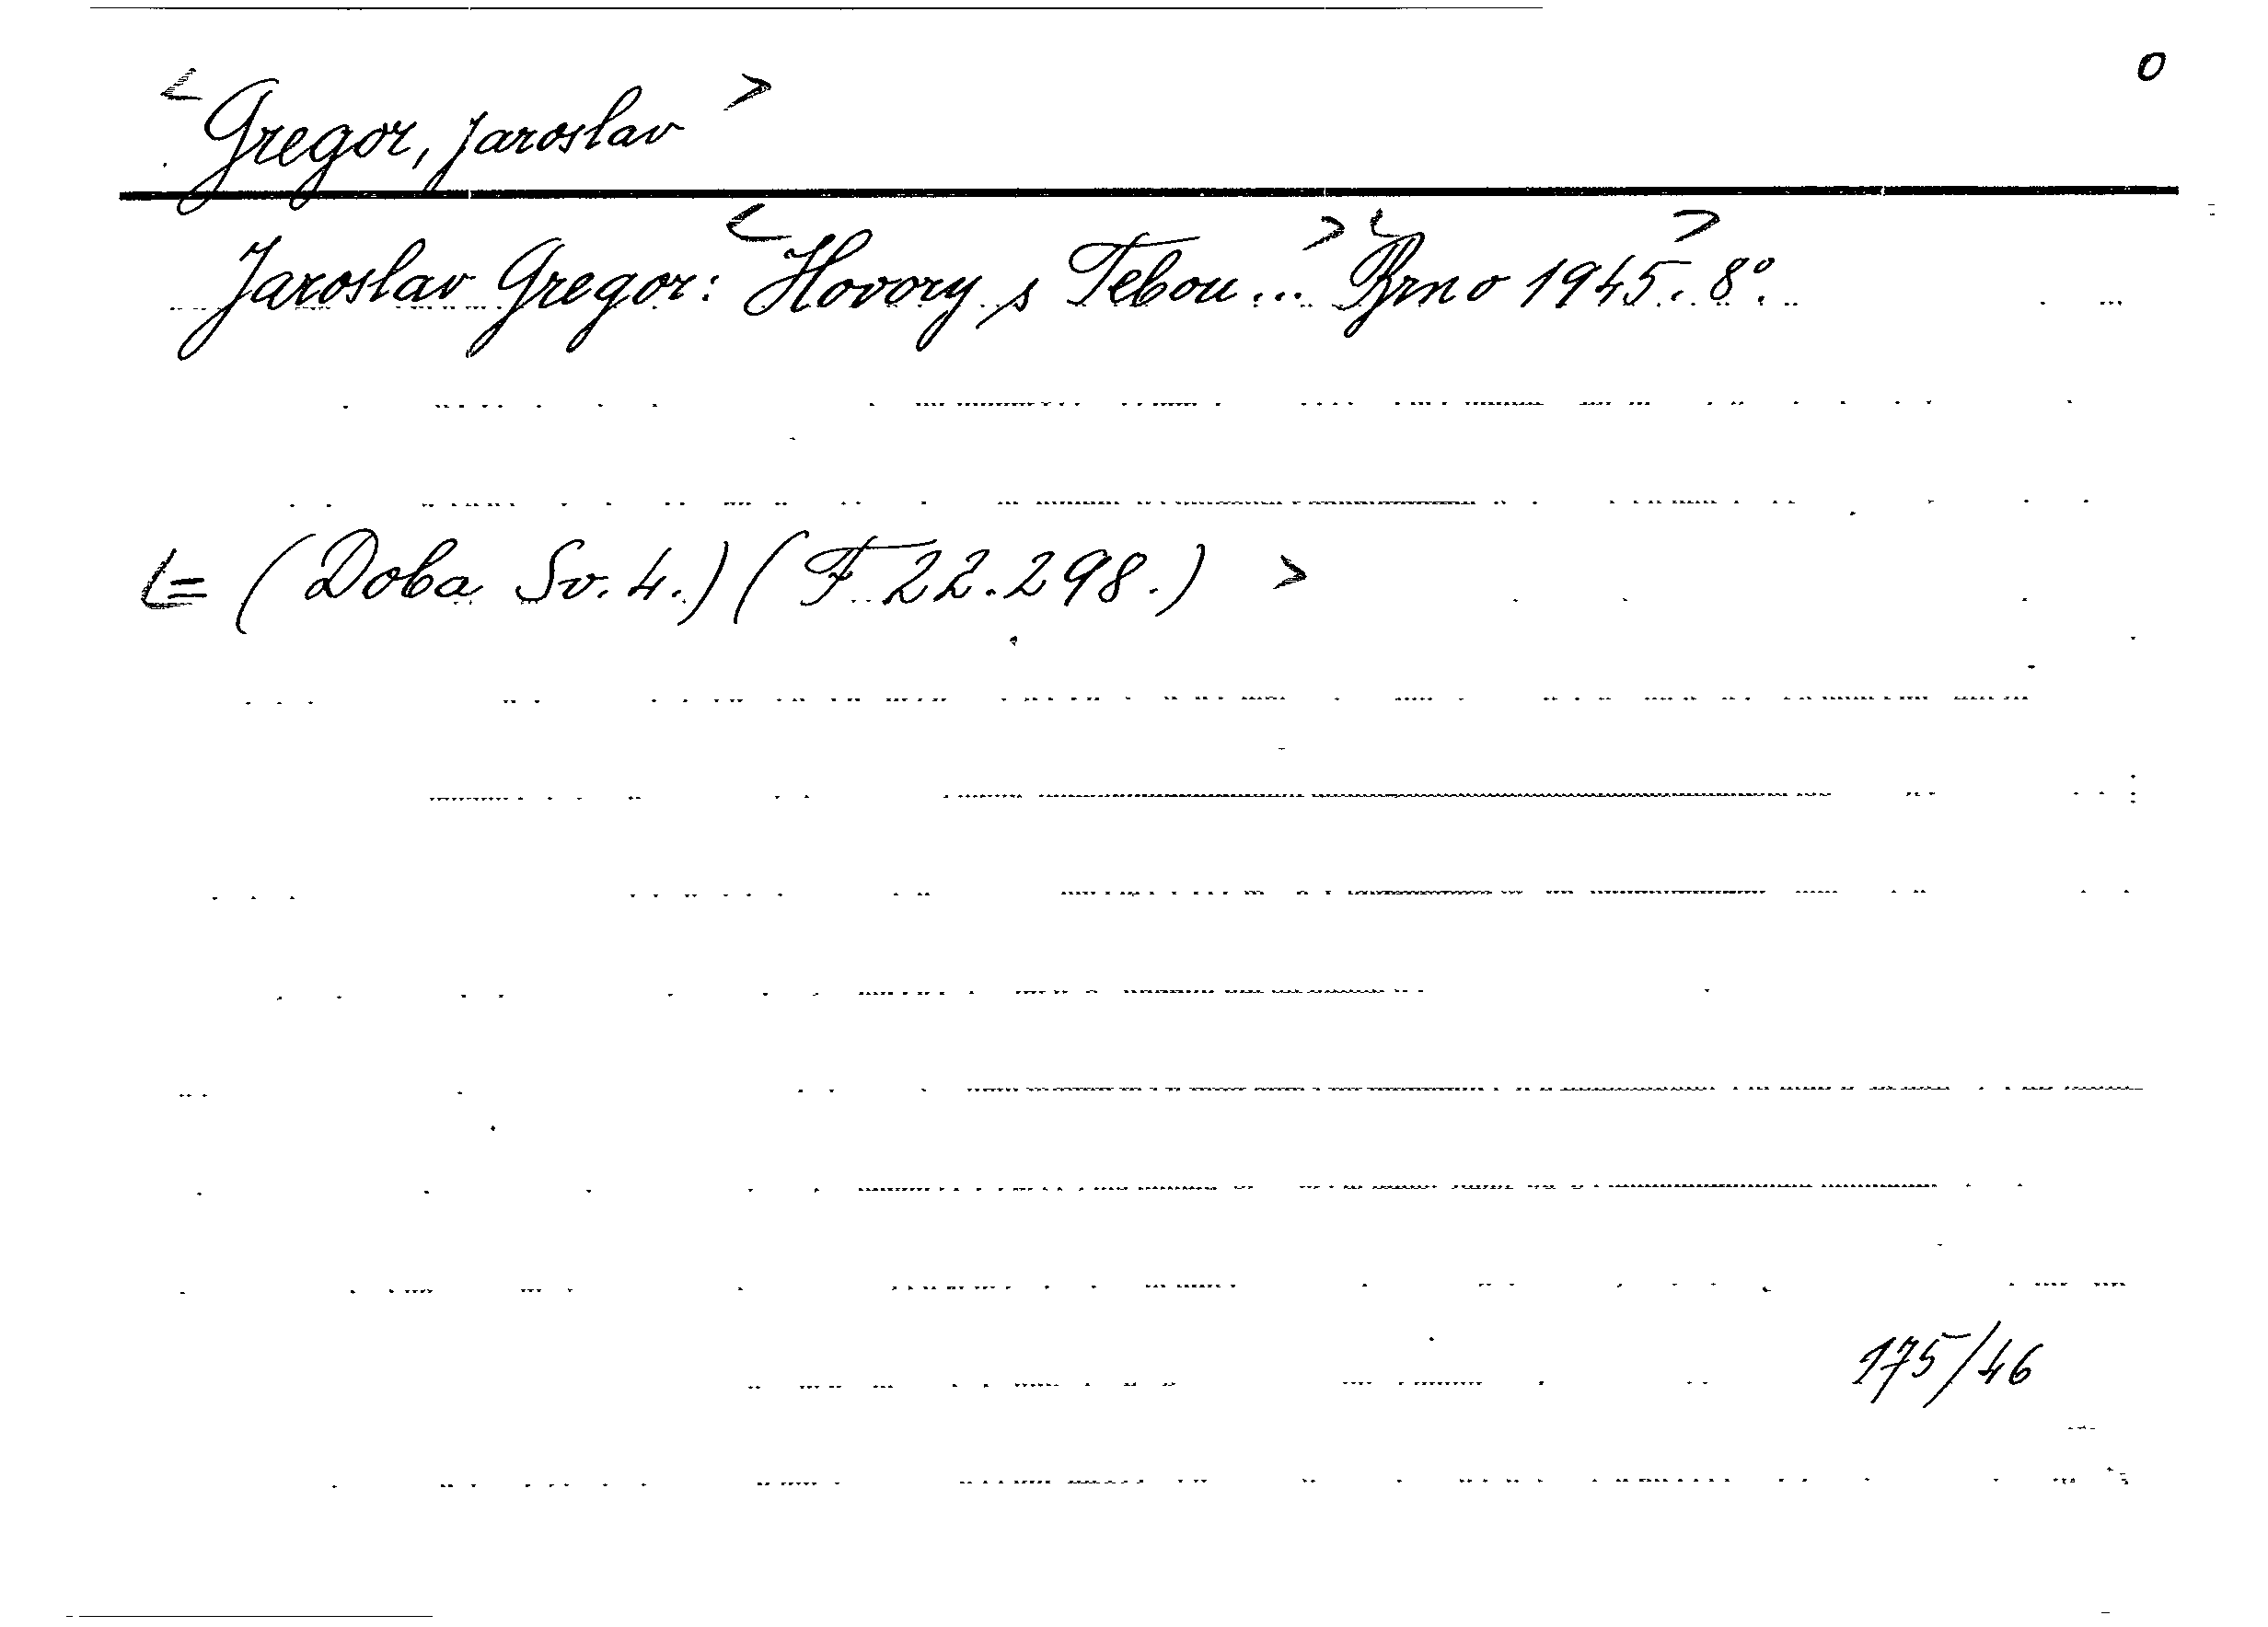 0
<Gregor, Jaroslav>
Jaroslav Gregor: <Hovory s Tebou...> <Brno 1945.> 8°.
<= (Doba Sv. 4.) (F 22.298.) >
175/46